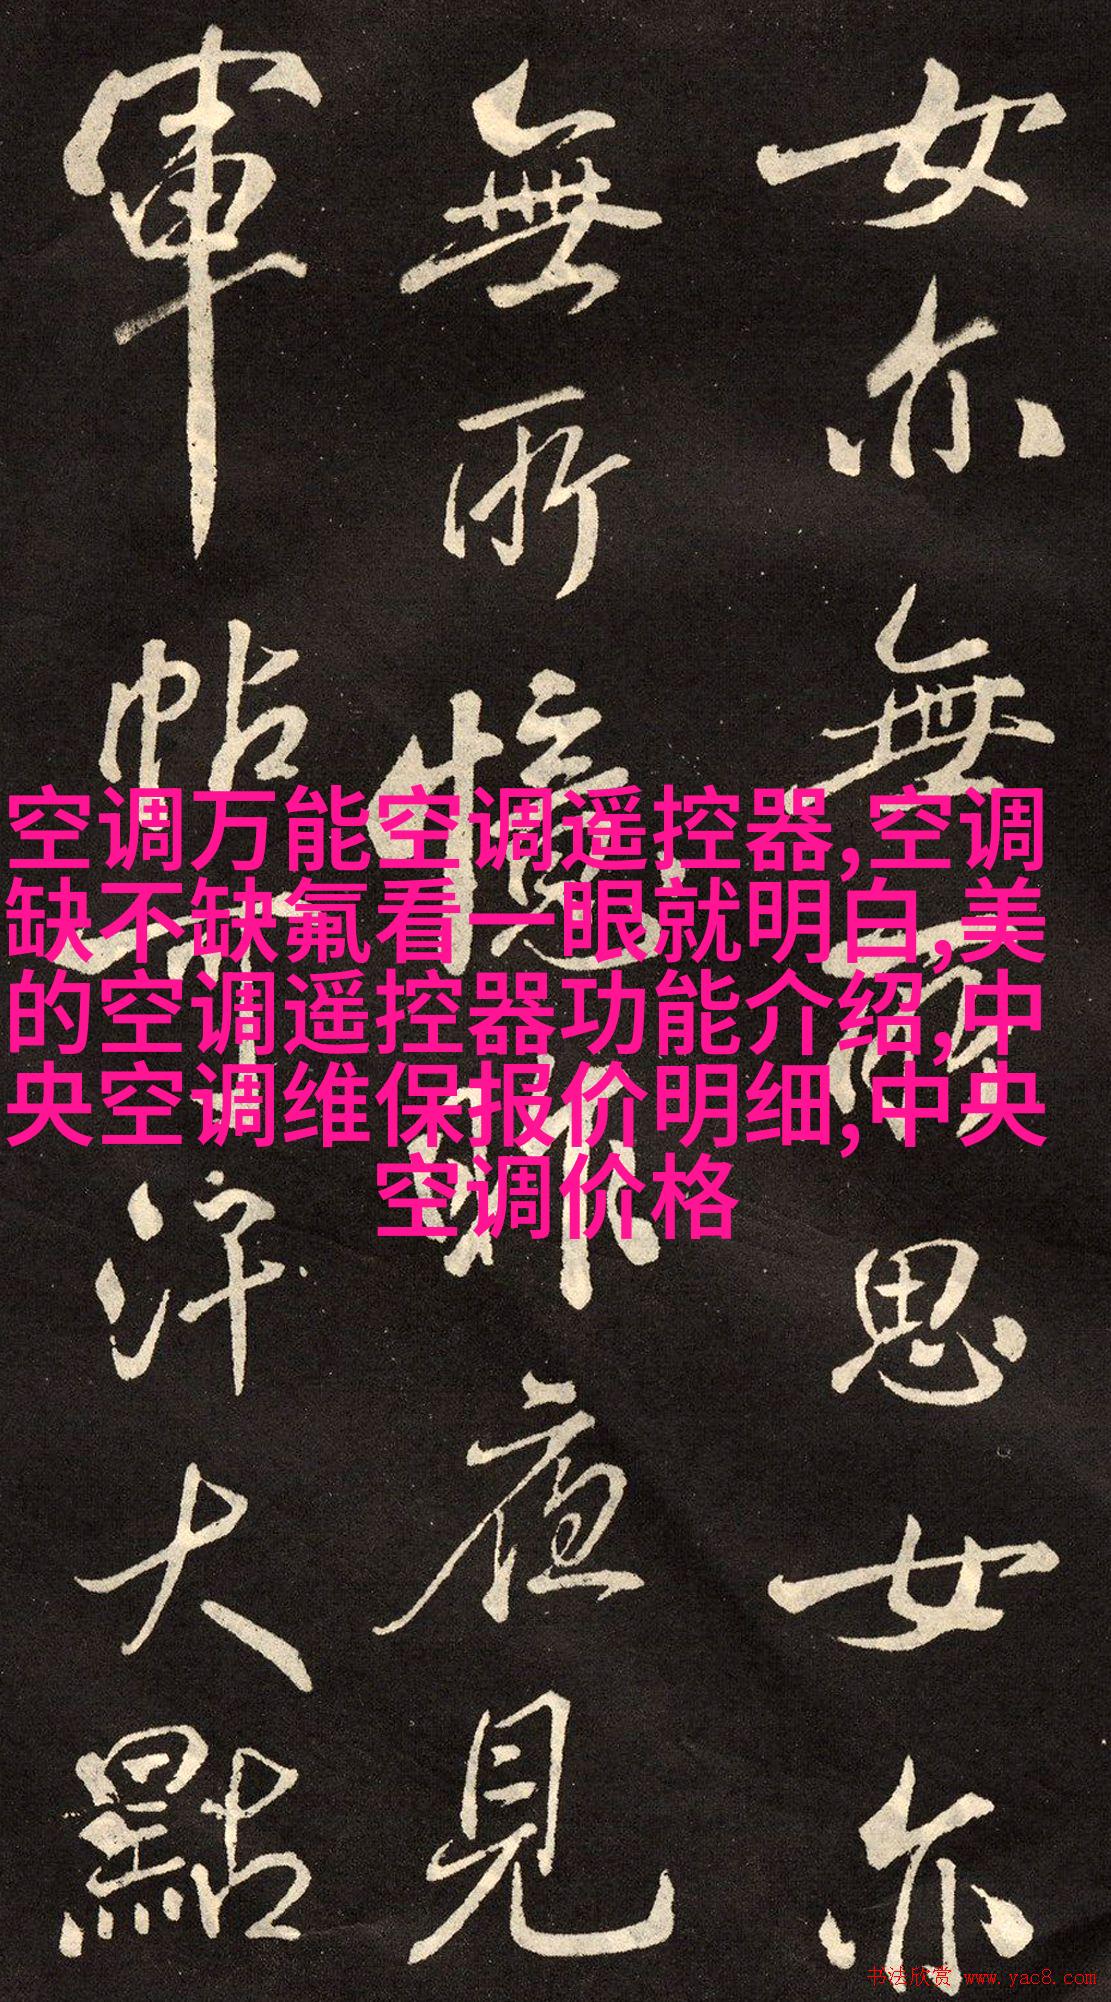 女亦無所思女亦
無所憶昨夜見
軍帖可汗大點
空调万能空调遥控器,空调
缺不缺氟看一眼就明白,美
的空调遥控器功能介绍,中
央空调维保报价明细,中央
空调价格
书法欣赏 www.yac8.com